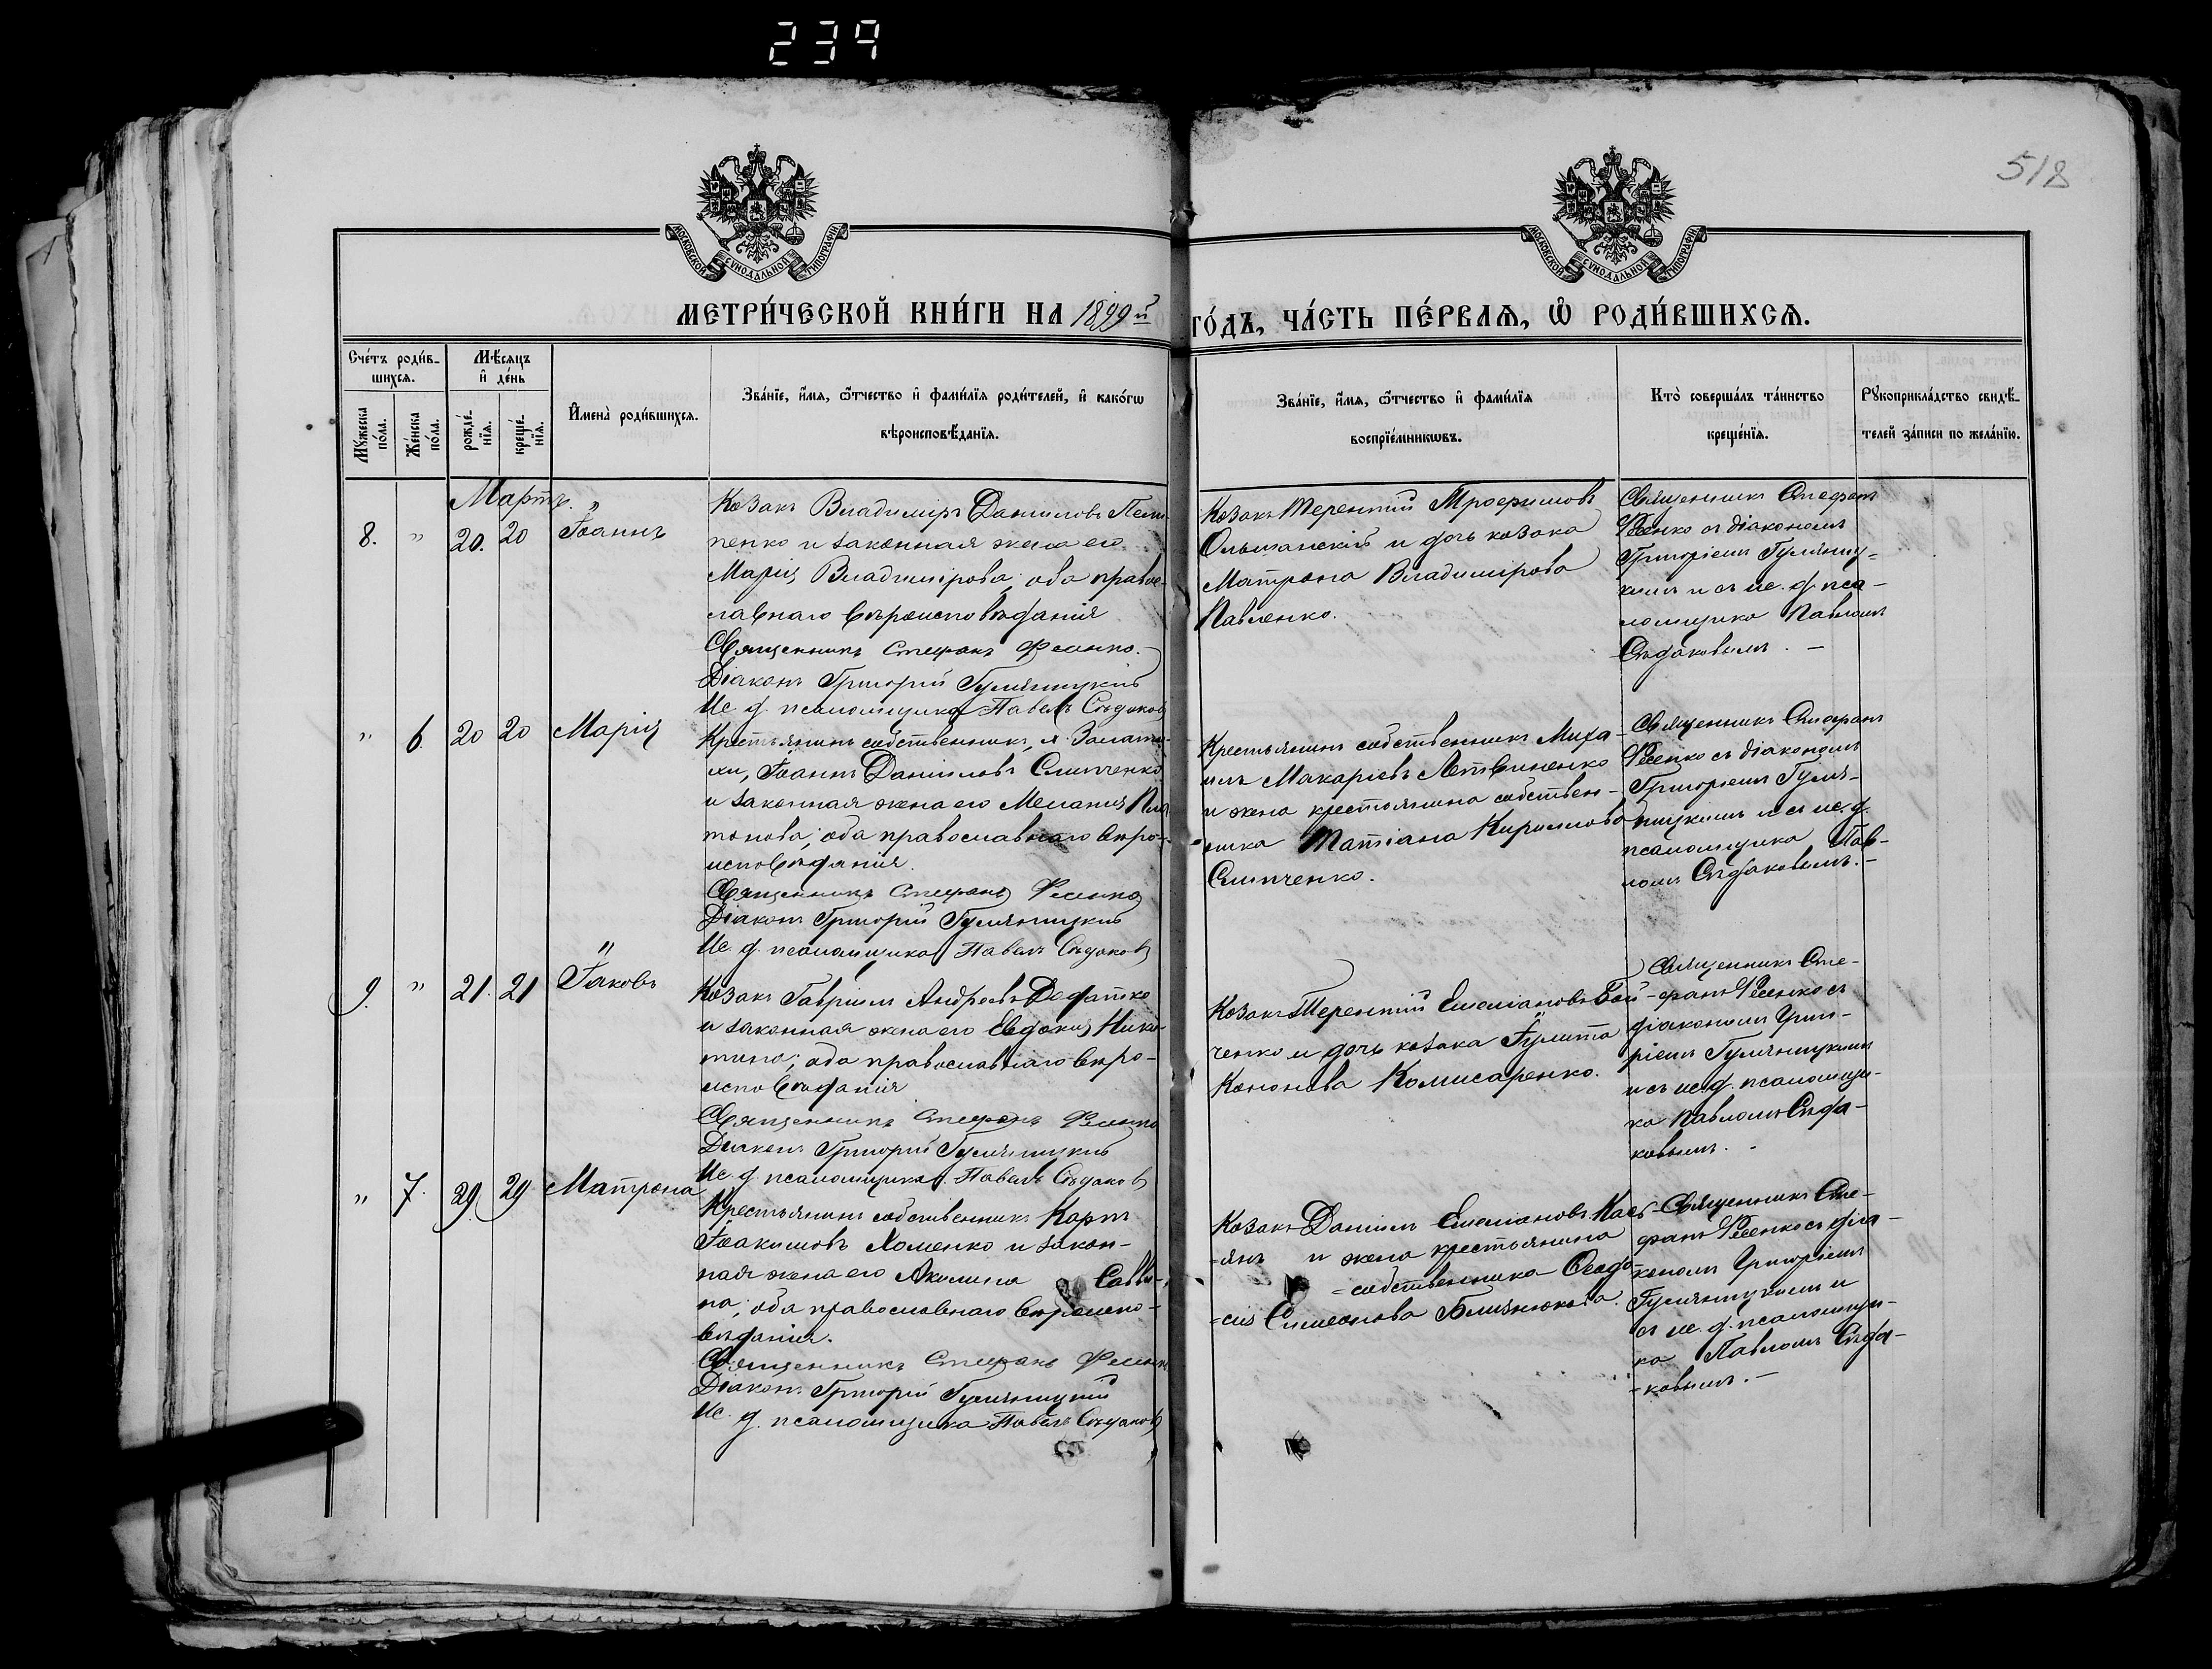 239
518
МОСКОВСКОЙ СѴНОДАЛЬНОЙ ТИПОГРАФІИ
МОСКОВСКОЙ СѴНОДАЛЬНОЙ ТИПОГРАФІИ
МЕТРИ́ЧЕСКОЙ КНИ́ГИ НА 1899й ГО́ДЪ, ЧА́СТЬ ПЕ́РВАѦ, Ѽ РОДИ́ВШИХСѦ.
Сче́тъ роди́в-
шихсѧ.
Мꙋжеска по́ла.
Же́нска по́ла.
Мѣ́сѧцъ
и҆ де́нь
рожде́-
нїѧ.
креще́-
нїѧ.
И҆мена̀ роди́вшихсѧ.
Зва́нїе, и҆́мѧ, ѻ҆́тчество и҆ фами́лїѧ роди́телей, и҆ како́гѡ
вѣроисповѣ́данїѧ.
Зва́нїе, и҆́мѧ, ѻ҆́тчество и҆ фами́лїѧ
воспрїе́мникѡвъ.
Кто̀ соверша́лъ та́инство
креще́нїѧ.
Рꙋкоприкла́дство свидѣ́-
телей за́писи по жела́нїю.
Мартъ.
8. " 20. 20 Іоаннъ
Козакъ Владиміръ Даниловъ
пенко и законная жена его
Марія Владимірова; оба правос-
лавнаго вѣроисповѣданія
Священникъ Стефанъ Фесенко.
Діаконъ Григорій Гуляницкій
Ис. д. псаломщика Павелъ Сѣдаковъ
Козакъ Терентій Трофимовъ
Ольшанскій и дочь козака
Матрона Владимірова
Павленко.
Священникъ Стефанъ
Фесенко съ діакономъ
Григоріемъ Гуляниц-
кимъ и съ ис. д. пса-
ломщика Павломъ
Сѣдаковымъ. –
" 6. 20 20 Марія
Крестьянинъ собственникъ, м.
Іоаннъ Даніиловъ Слипченко
и законная жена его Меланія Пла-
тонова; оба православнаго вѣро-
исповѣданія.
Священникъ Стефанъ Фесенко
Діаконъ Григорій Гуляницкій
Ис. д. псаломщика Павелъ Сѣдаковъ
Крестьянинъ собственникъ Миха-
илъ Макаріевъ Литвиненко
и жена крестьянина собствен-
ника Татіана Кириллова
Слипченко.
Священникъ Стефанъ
Фесенко съ діакономъ
Григоріемъ Гуля-
ницкимъ и съ ис. д.
псаломщика Пав-
ломъ Сѣдаковымъ. –
9. " 21. 21 Іаковъ
Козакъ Гавріилъ Андреевъ Дегатко
и законная жена его Евдокія Ники-
тина; оба православнаго вѣро-
исповѣданія
Священникъ Стефанъ Фесенко
Діаконъ Григорій Гуляницкій
Ис. д. псаломщика Павелъ Сѣдаковъ
Козакъ Терентій Емеліановъ Бой-
ченко и дочь козака Іулита
Кононова Комисаренко.
Священникъ Сте-
фанъ Фесенко съ
діакономъ Григо-
ріемъ Гуляницкимъ
и съ ис. д. псаломщи-
ка Павломъ Сѣда-
ковымъ. –
" 7. 29. 29 Матрона
Крестьянинъ собственникъ Карпъ
Іоакимовъ Хоменко и закон-
ная жена его Акилина Савви-
на; оба православнаго вѣроиспо-
вѣданія.
Священникъ Стефанъ Фесенко
Діаконъ Григорій Гуляницкій
Ис. д. псаломщика Павелъ Сѣдаковъ
Козакъ Даніилъ Емеліановъ Касъ-
=янъ и жена крестьянина
=собственника Феодо-
=сія Симеонова Близнюкова.
Священникъ Сте-
фанъ Фесенко съ діа-
кономъ Григоріемъ
Гуляницкимъ и
съ ис. д. псаломщи-
ка Павломъ Сѣда-
=ковымъ. –